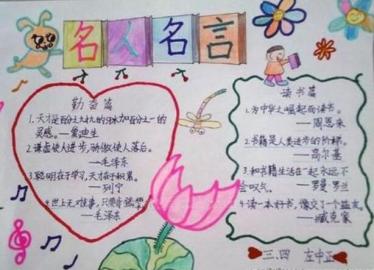 名人名言
勤奋篇
1.天才是百分之九十九的汗水加百分之一的
灵感。—爱迪生
2.谦虚使人进步,骄傲使人落后。
—毛泽东
3.聪明在于学习,天才在于积累。
—列宁
4.世上无难事,只要肯登攀。
—毛泽东
读书篇
1.为中华之崛起而读书。
—周恩来
2.书籍是人类进步的阶梯。
—高尔基
3.和书籍生活在一起永远不
会叹气。—罗曼·罗兰
4.读一本好书,像交了一个益友。
—臧克家
三.四 左中正